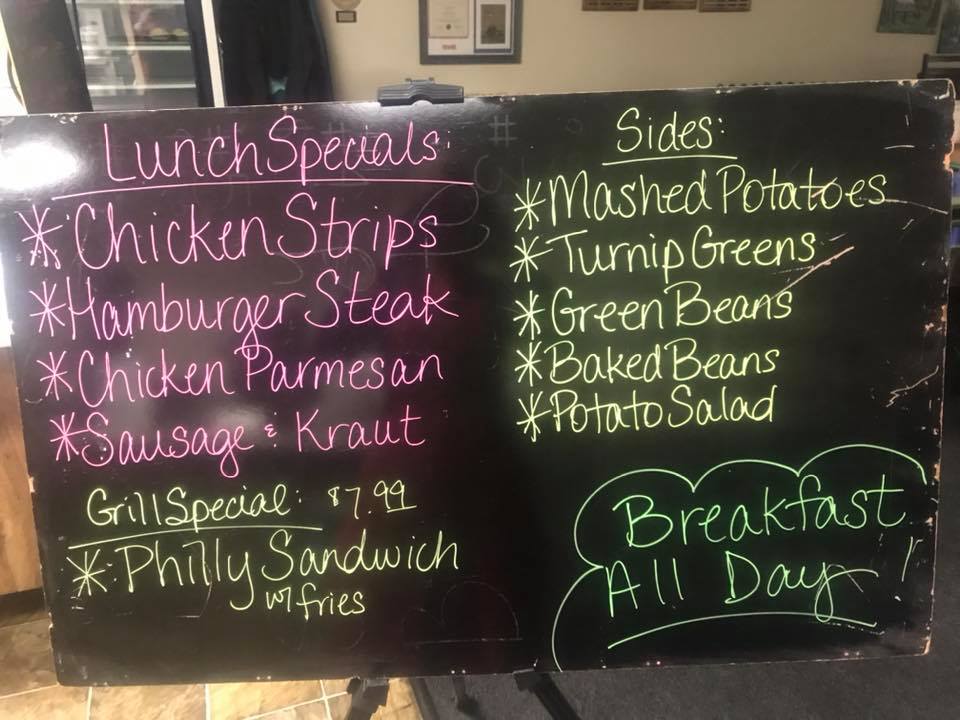 Lunch Specials:
* Chicken Strips
* Hamburger Steak
* Chicken Parmesan
* Sausage & Kraut
Grill Special: $7.99
* Philly Sandwich
w/ fries
Sides:
* Mashed Potatoes
* Turnip Greens
* Green Beans
* Baked Beans
* Potato Salad
Breakfast
All Day!